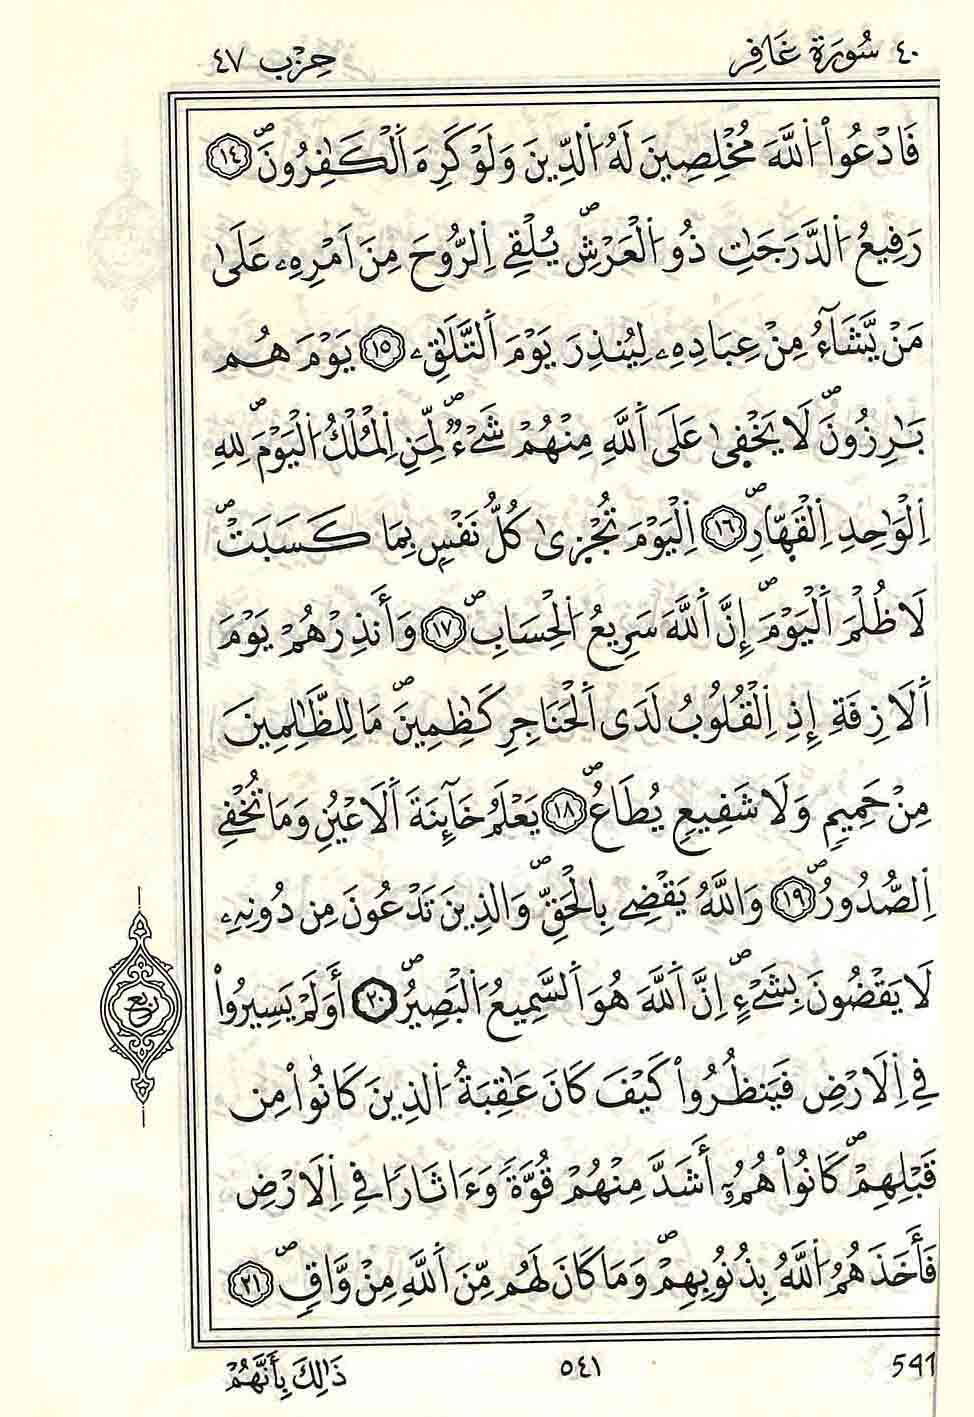 ٤٠ سُورَةُ غَافِر
حِزْب ٤٧
فَادْعُواْ اُللَّهَ مُخْلِصِينَ لَهُ اُلدِّينَ وَلَوْ كَرِهَ اَلْكَٰفِرُونَۖ ١٤
رَفِيعُ اُلدَّرَجَٰتِ ذُو اُلْعَرْشِۖ يُلْقِے اِلرُّوحَ مِنَ اَمْرِهِۦ عَلَىٰ
مَنْ يَّشَآءُ مِنْ عِبَادِهِۦ لِيُنذِرَ يَوْمَ اَلتَّلَٰقِۦ ١٥ يَوْمَ هُم
بَٰرِزُونَۖ لَا يَخْفِىٰ عَلَى اَللَّهِ مِنْهُمْ شَےْءٞۖ لِّمَنِ اِلْمُلْكُ اُلْيَوْمَۖ لِلهِ
اِلْوَٰحِدِ اِلْقَهّ۪ارِۖ ١٦ اِلْيَوْمَ تُجْزىٰ كُلُّ نَفْسِۢ بِمَا كَسَبَتْۖ
لَا ظُلْمَ اَلْيَوْمَۖ إِنَّ اَللَّهَ سَرِيعُ اُلْحِسَابِۖ ١٧ وَأَنذِرْهُمْ يَوْمَ
اَلَازِفَةِ إِذِ اِلْقُلُوبُ لَدَى اَلْحَنَاجِرِ كَٰظِمِينَۖ مَا لِلظَّٰلِمِينَ
مِنْ حَمِيمٖ وَلَا شَفِيعٖ يُطَاعُۖ ١٨ يَعْلَمُ خَآئِنَةَ اَلَاعْيُنِ وَمَا تُخْفِے
اِلصُّدُورُۖ ١٩ وَاللَّهُ يَقْضِے بِالْحَقِّۖ وَالذِينَ تَدْعُونَ مِن دُونِهِۦ
لَا يَقْضُونَ بِشَےْءٍۖ اِنَّ اَللَّهَ هُوَ اَلسَّمِيعُ اُلْبَصِيرُۖ ٢٠ أَوَلَمْ يَسِيرُواْ
فِے اِلَارْضِ فَيَنظُرُواْ كَيْفَ كَانَ عَٰقِبَةُ اُلذِينَ كَانُواْ مِن
قَبْلِهِمْۖ كَانُواْ هُمُۥٓ أَشَدَّ مِنْهُمْ قُوَّةٗ وَءَاثَارٗا فِے اِلَارْضِ
فَأَخَذَهُمُ اُللَّهُ بِذُنُوبِهِمْۖ وَمَا كَانَ لَهُم مِّنَ اَللَّهِ مِنْ وَّاقٖۖ ٢١
ربع
541
٥٤١
ذَٰلِكَ بِأَنَّهُمْ